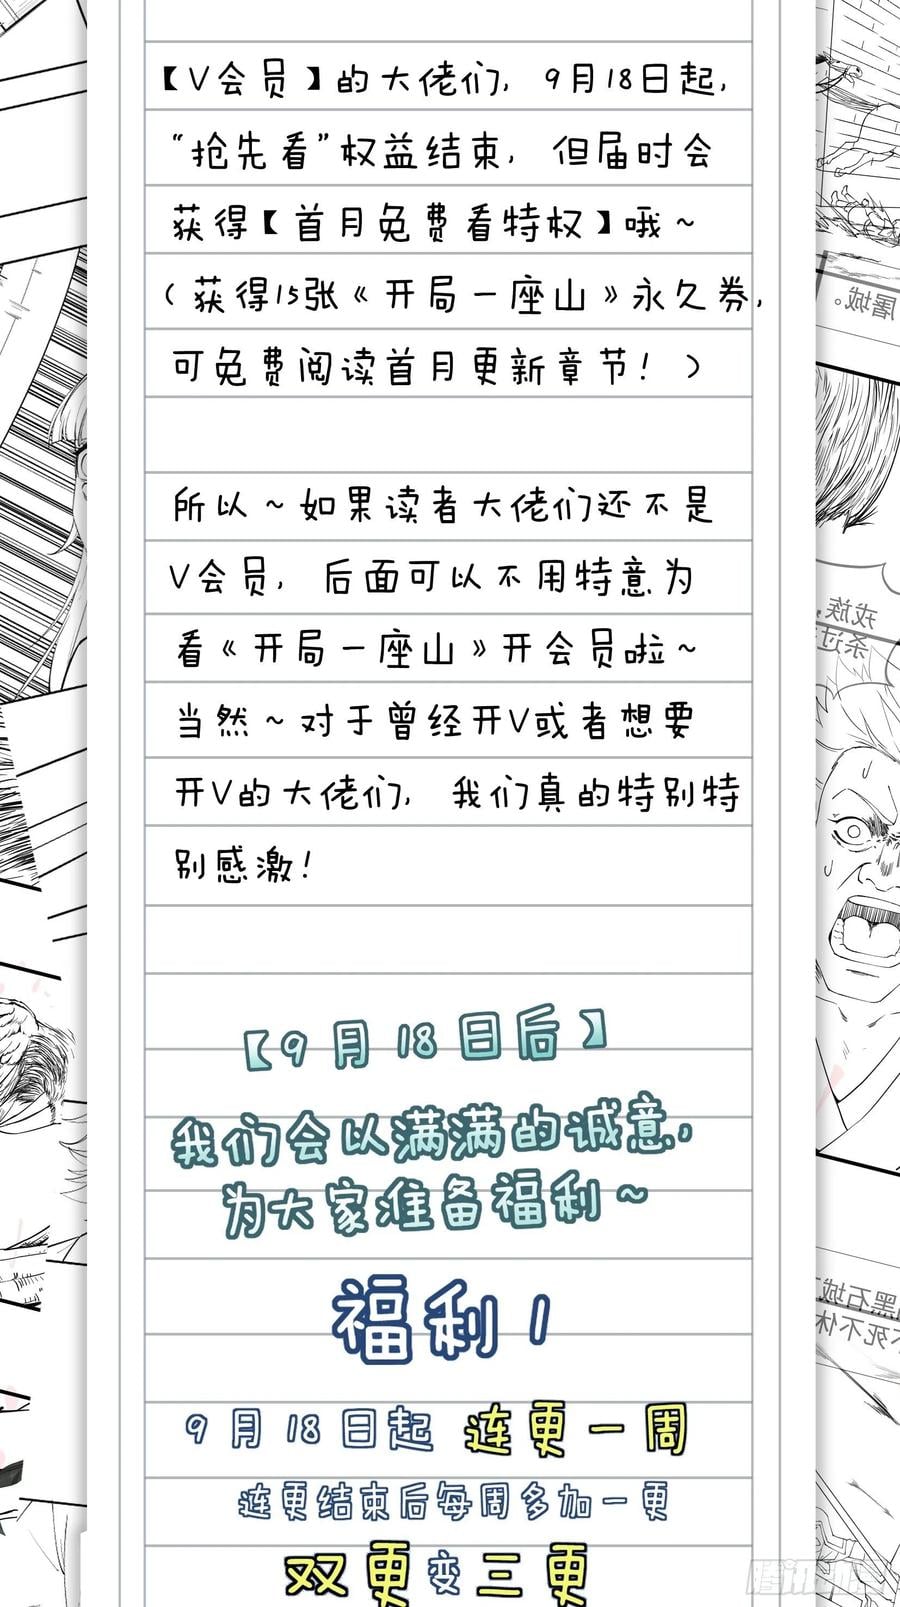 【V会员】的大佬们，9月18日起，
“抢先看”权益结束，但届时会
获得【首月免费看特权】哦~
（获得15张《开局一座山》永久券，
可免费阅读首月更新章节！）
所以~如果读者大佬们还不是
V会员，后面可以不用特意为
看《开局一座山》开会员啦~
当然~对于曾经开V或者想要
开V的大佬们，我们真的特别特
别感激！
【9月18日后】
我们会以满满的诚意，
为大家准备福利~
福利1
9月18日起 连更一周
连更结束后每周多加一更
双更变三更
屠城。
戎族
杀过
黑石城
不死不休
腾讯动漫